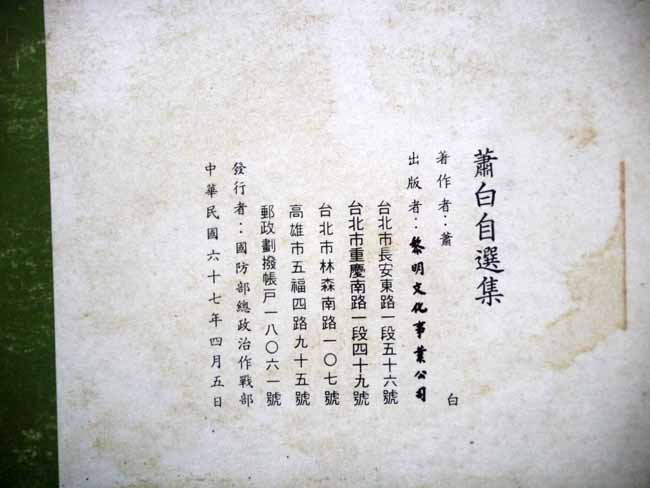 蕭白自選集
著作者：蕭白
出版者：黎明文化事業公司
台北市長安東路一段五十六號
台北市重慶南路一段四十九號
台北市林森南路一〇七號
高雄市五福四路九十五號
郵政劃撥帳戶一八〇六一號
發行者：國防部總政治作戰部
中華民國六十七年四月五日